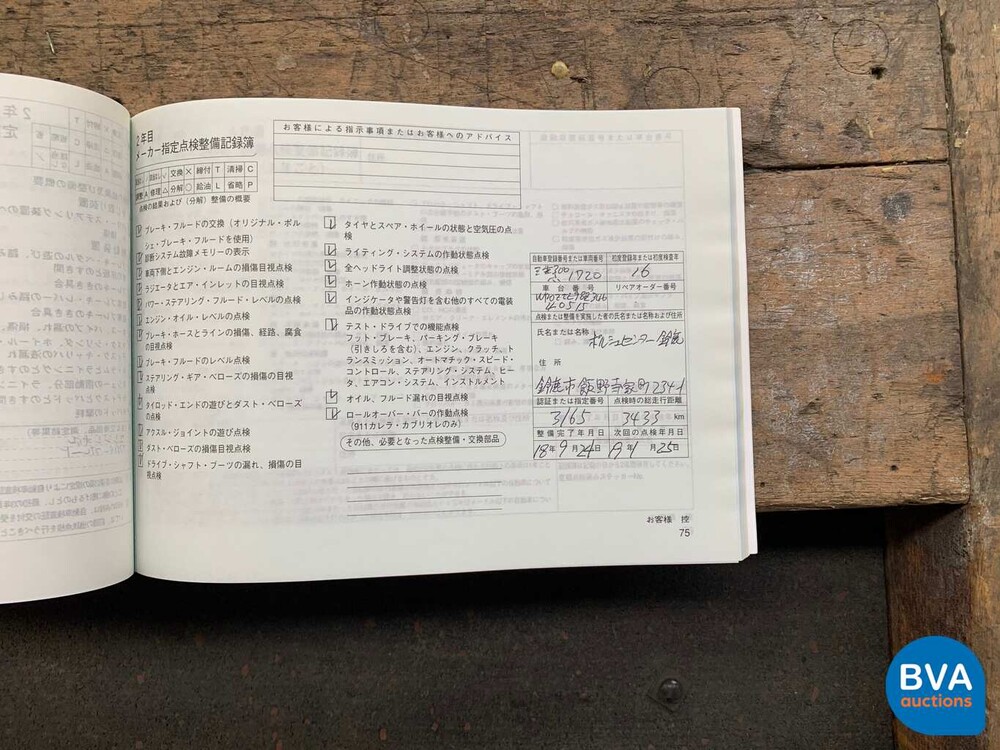 2年目
メーカー指定点検整備記録簿
交換 × 締付 T 清掃 C
調整 A 修理 △ 分解 ○ 給油 L 省略 P
点検の結果および（分解）整備の概要
ブレーキ・フルードの交換（オリジナル・ポル
シェ・ブレーキ・フルードを使用）
診断システム故障メモリーの表示
車両下側とエンジン・ルームの損傷目視点検
ラジエータとエア・インレットの目視点検
パワー・ステアリング・フルード・レベルの点検
エンジン・オイル・レベルの点検
ブレーキ・ホースとラインの損傷、経路、腐食
の目視点検
ブレーキ・フルードのレベル点検
ステアリング・ギア・ベローズの損傷の目視
点検
タイロッド・エンドの遊びとダスト・ベローズ
の点検
アクスル・ジョイントの遊び点検
ダスト・ベローズの損傷目視点検
ドライブ・シャフト・ブーツの漏れ、損傷の目
視点検
お客様による指示事項またはお客様へのアドバイス
タイヤとスペア・ホイールの状態と空気圧の点
検
ライティング・システムの作動状態点検
全ヘッドライト調整状態の点検
ホーン作動状態の点検
インジケータや警告灯を含む他のすべての電装
品の作動状態点検
テスト・ドライブでの機能点検
フット・ブレーキ、パーキング・ブレーキ
（引きしろを含む）、エンジン、クラッチ、ト
ランスミッション、オートマチック・スピード・
コントロール、ステアリング・システム、ヒー
タ、エアコン・システム、インストルメント
オイル、フルード漏れの目視点検
ロールオーバー・バーの作動点検
（911カレラ・カブリオレのみ）
その他、必要となった点検整備・交換部品
自動車登録番号または車両番号 初度登録年または初度検査年
三重300 1720 16
車台番号 リペアオーダー番号
WP0ZZZ99Z
40515
点検または整備を実施した者の氏名または名称および住所
氏名または名称 ポルシェセンター鈴鹿
住所
鈴鹿市飯野寺家町234-1
認証または指定番号 点検時の総走行距離
3165 3433 km
整備完了年月日 次回の点検年月日
18年9月24日 19年1月25日
お客様 控
75
BVA
auctions